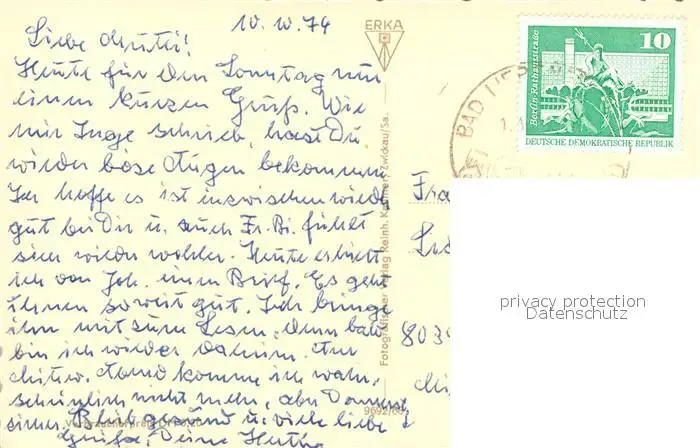 10. IV. 79
Liebe Mutti!
Heute für den Sonntag nur
einen kurzen Gruß. Wie
mir Inge schrieb, hast Du
wieder böse Augen bekommen
Ich hoffe es ist inzwischen wieder
gut bei Dir u. auch Fr. Bi. fühlt
sich wieder wohler. Heute erhielt
ich von Joh. einen Brief. Es geht
ihnen soweit gut. Ich bringe
ihn mit zum Lesen, denn bald
bin ich wieder daheim. Am
Mittw. Abend komme ich wahr-
scheinlich nicht mehr, aber Donners
Bleib gesund u. viele liebe
Grüße, Deine
ERKA
Fotografischer Verlag Reinh. Kallmer, Zwickau/Sa.
Verbraucherpreis
9692/66
BAD
10
Berlin-Rathausstraße
DEUTSCHE DEMOKRATISCHE REPUBLIK
Fra
803
privacy protection
Datenschutz